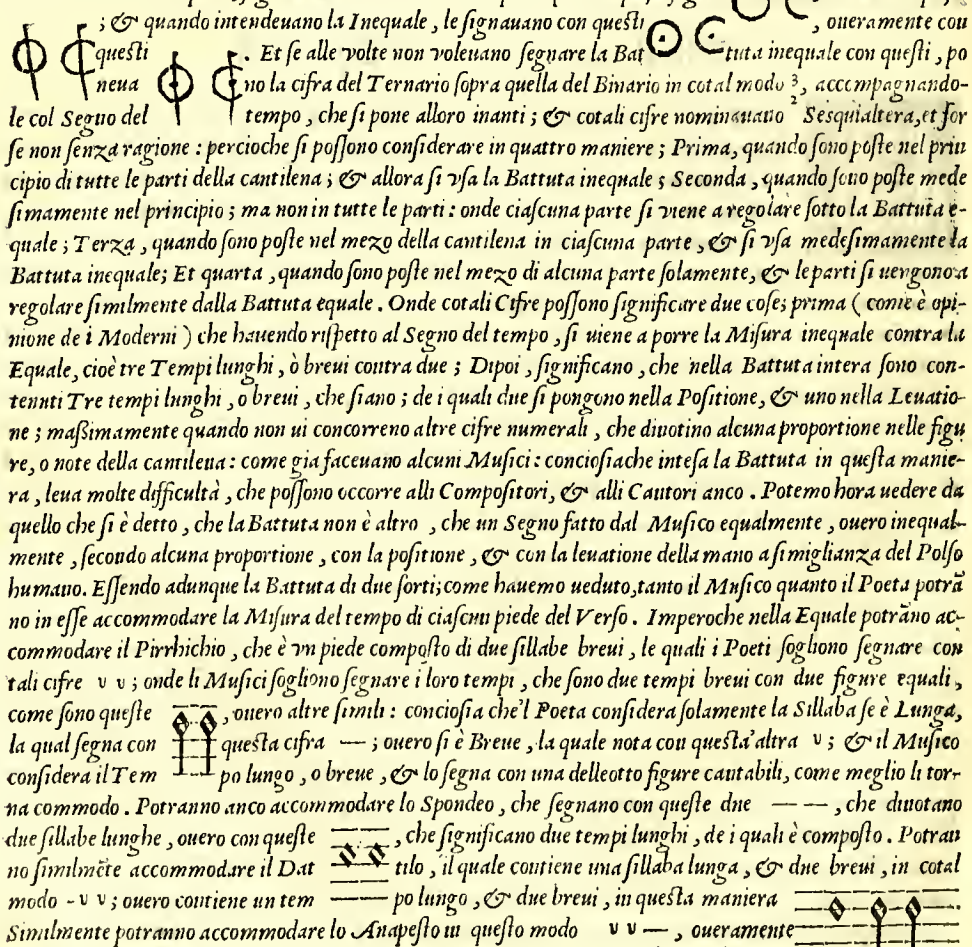 ; & quando intendeuano la Inequale, le ſignauano con queſti , oueramente con
queſti . Et ſe alle volte non voleuano ſegnare la Battuta inequale con queſti, po
neua no la cifra del Ternario ſopra quella del Binario in cotal modo 3/2, accompagnando-
le col Segno del tempo, che ſi pone alloro inanti; & cotali cifre nominauano Seſquialtera, et for
ſe non ſenza ragione: percioche ſi poſſono conſiderare in quattro maniere; Prima, quando ſono poſte nel prin
cipio di tutte le parti della cantilena; & allora ſi vſa la Battuta inequale; Seconda, quando ſono poſte mede
ſimamente nel principio; ma non in tutte le parti: onde ciaſcuna parte ſi viene a regolare ſotto la Battuta e-
quale; Terza, quando ſono poſte nel mezo della cantilena in ciaſcuna parte, & ſi vſa medeſimamente la
Battuta inequale; Et quarta, quando ſono poſte nel mezo di alcuna parte ſolamente, & le parti ſi uengono a
regolare ſimilmente dalla Battuta equale. Onde cotali Cifre poſſono ſignificare due coſe; prima (come è opi-
nione de i Moderni) che hauendo riſpetto al Segno del tempo, ſi uiene a porre la Miſura inequale contra la
Equale, cioè tre Tempi lunghi, ò breui contra due; Dipoi, ſignificano, che nella Battuta intera ſono con-
tenuti Tre tempi lunghi, o breui, che ſiano; de i quali due ſi pongono nella Poſitione, & uno nella Leuatio-
ne; maßimamente quando non ui concorreno altre cifre numerali, che dinotino alcuna proportione nelle figu
re, o note della cantilena: come gia faceuano alcuni Muſici: concioſiache inteſa la Battuta in queſta manie-
ra, leua molte difficultà, che poſſono occorre alli Compoſitori, & alli Cantori anco. Potemo hora uedere da
quello che ſi è detto, che la Battuta non è altro, che un Segno fatto dal Muſico equalmente, ouero inequal-
mente, ſecondo alcuna proportione, con la poſitione, & con la leuatione della mano a ſimiglianza del Polſo
humano. Eſſendo adunque la Battuta di due ſorti; come hauemo ueduto, tanto il Muſico quanto il Poeta potrã
no in eſſe accommodare la Miſura del tempo di ciaſcun piede del Verſo. Imperoche nella Equale potrãno ac-
commodare il Pirrhichio, che è vn piede compoſto di due ſillabe breui, le quali i Poeti ſogliono ſegnare con
tali cifre v v; onde li Muſici ſogliono ſegnare i loro tempi, che ſono due tempi breui con due figure equali,
come ſono queſte , ouero altre ſimili: concioſia che'l Poeta conſidera ſolamente la Sillaba ſe è Lunga,
la qual ſegna con queſta cifra —; ouero ſi è Breue, la quale nota con queſta'altra v; & il Muſico
conſidera il Tempo lungo, o breue, & lo ſegna con una delle otto figure cantabili, come meglio li tor-
na commodo. Potranno anco accommodare lo Spondeo, che ſegnano con queſte due — —, che dinotano
due ſillabe lunghe, ouero con queſte , che ſignificano due tempi lunghi, de i quali è compoſto. Potran
no ſimilmẽte accommodare il Dattilo, il quale contiene una ſillaba lunga, & due breui, in cotal
modo - v v; ouero contiene un tempo lungo, & due breui, in queſta maniera
Similmente potranno accommodare lo Anapeſto in queſto modo v v —, oueramente